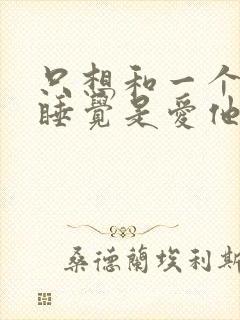 只想和一个
睡覺是愛他
桑德蘭埃利斯